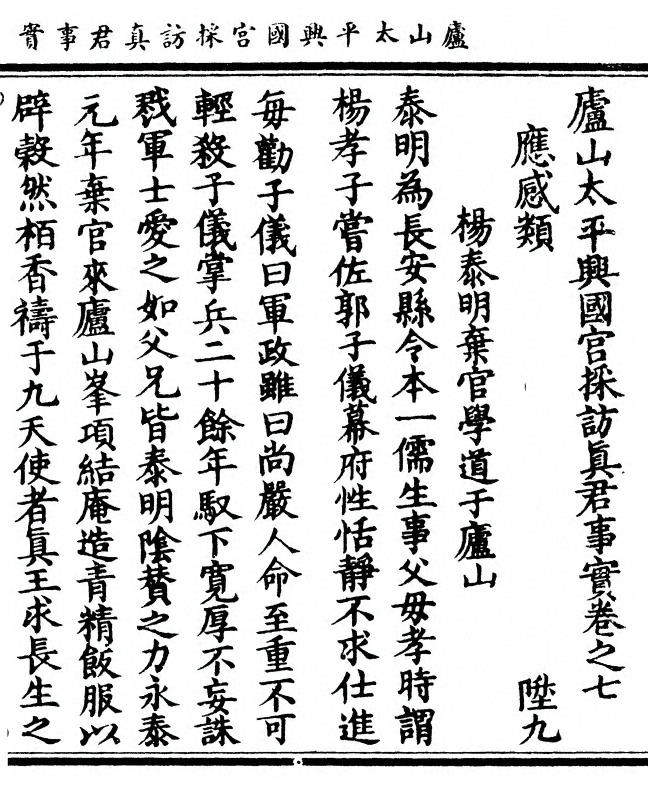 廬山太平興國宮採訪真君事實
廬山太平興國宮採訪眞君事實卷之七
應感類 陞九
楊泰明棄官學道于廬山
泰明為長安縣令本一儒生事父毋孝時謂
楊孝子嘗佐郭子儀幕府性恬靜不求仕進
每勸子儀曰軍政雖曰尚嚴人命至重不可
輕殺子儀掌兵二十餘年馭下寬厚不妄誅
戮軍士愛之如父兄皆泰明隂賛之力永泰
元年棄官來廬山峯項結庵造青精飯服以
辟穀然栢香禱于九天使者眞王求長生之